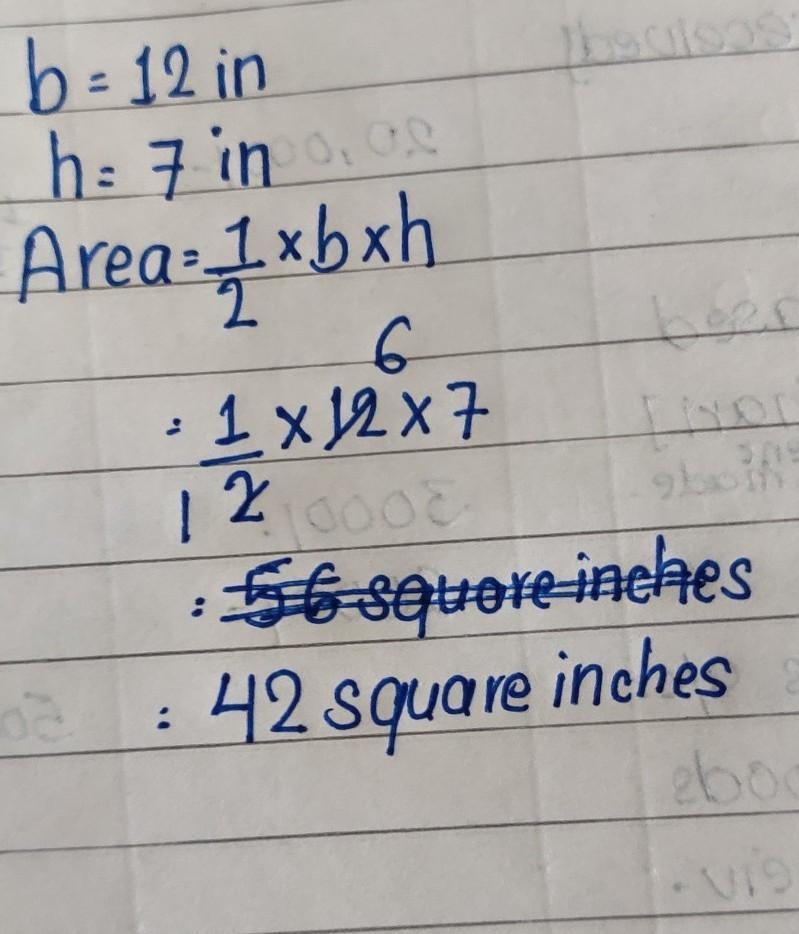 b = 12 in
h = 7 in
Area = 1/2 × b × h
6
= 1/2 × 12 × 7
1
= 56 square inches
= 42 square inches